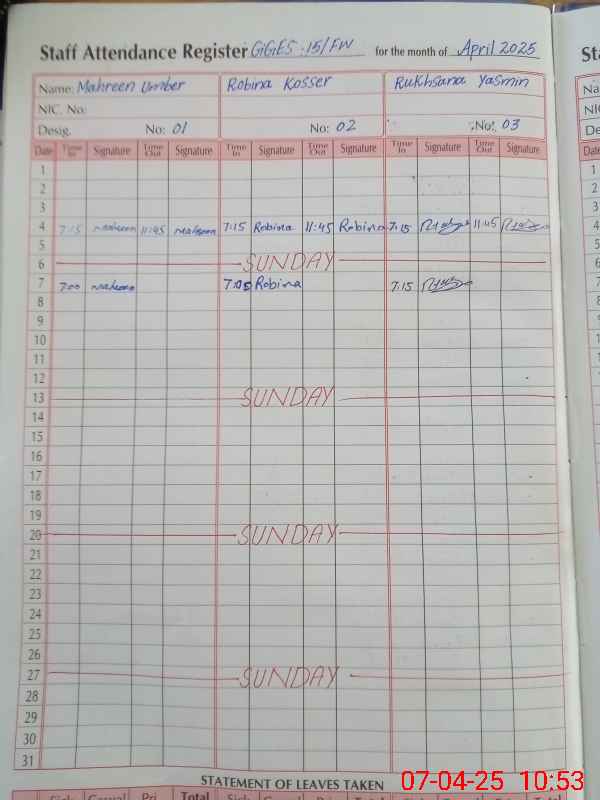 Staff Attendance Register GGES-15/FW for the month of April 2025
Name: Mahreen Umber Robina Kosser Rukhsana Yasmin
NIC. No:
Desig. No: 01 No: 02 No: 03
Date Time In Signature Time Out Signature Time In Signature Time Out Signature Time In Signature Time Out Signature
1
2
3
4 7:15 Mahreen 11:45 Mahreen 7:15 Robina 11:45 Robina 7:15 11:45
5
6 SUNDAY
7 7:00 Mahreen 7:05 Robina 7:15
8
9
10
11
12
13 SUNDAY
14
15
16
17
18
19
20 SUNDAY
21
22
23
24
25
26
27 SUNDAY
28
29
30
31
STATEMENT OF LEAVES TAKEN
07-04-25 10:53